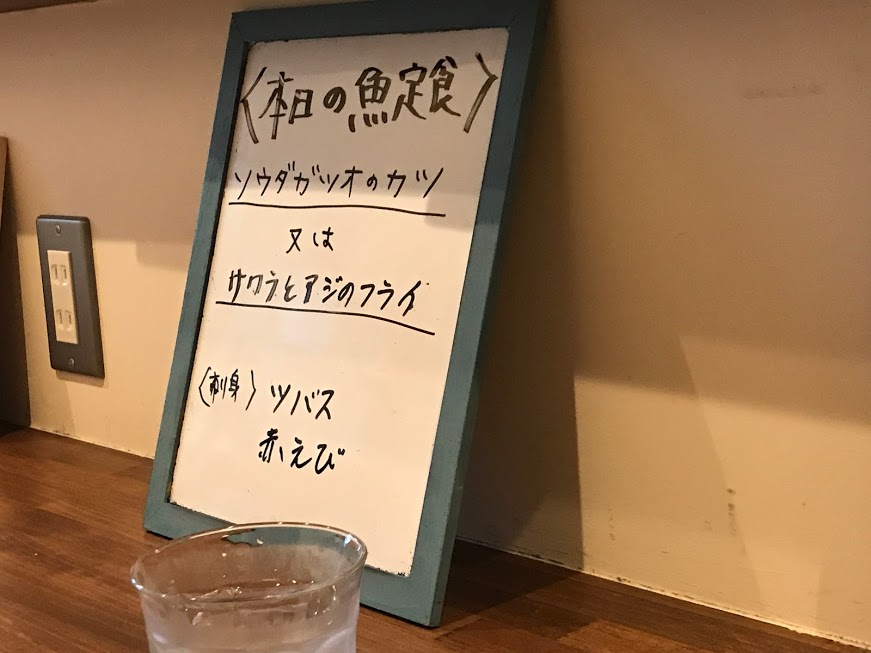 〈本日の魚定食〉
ソウダガツオのカツ
又は
サワラとアジのフライ
〈刺身〉ツバス
赤えび